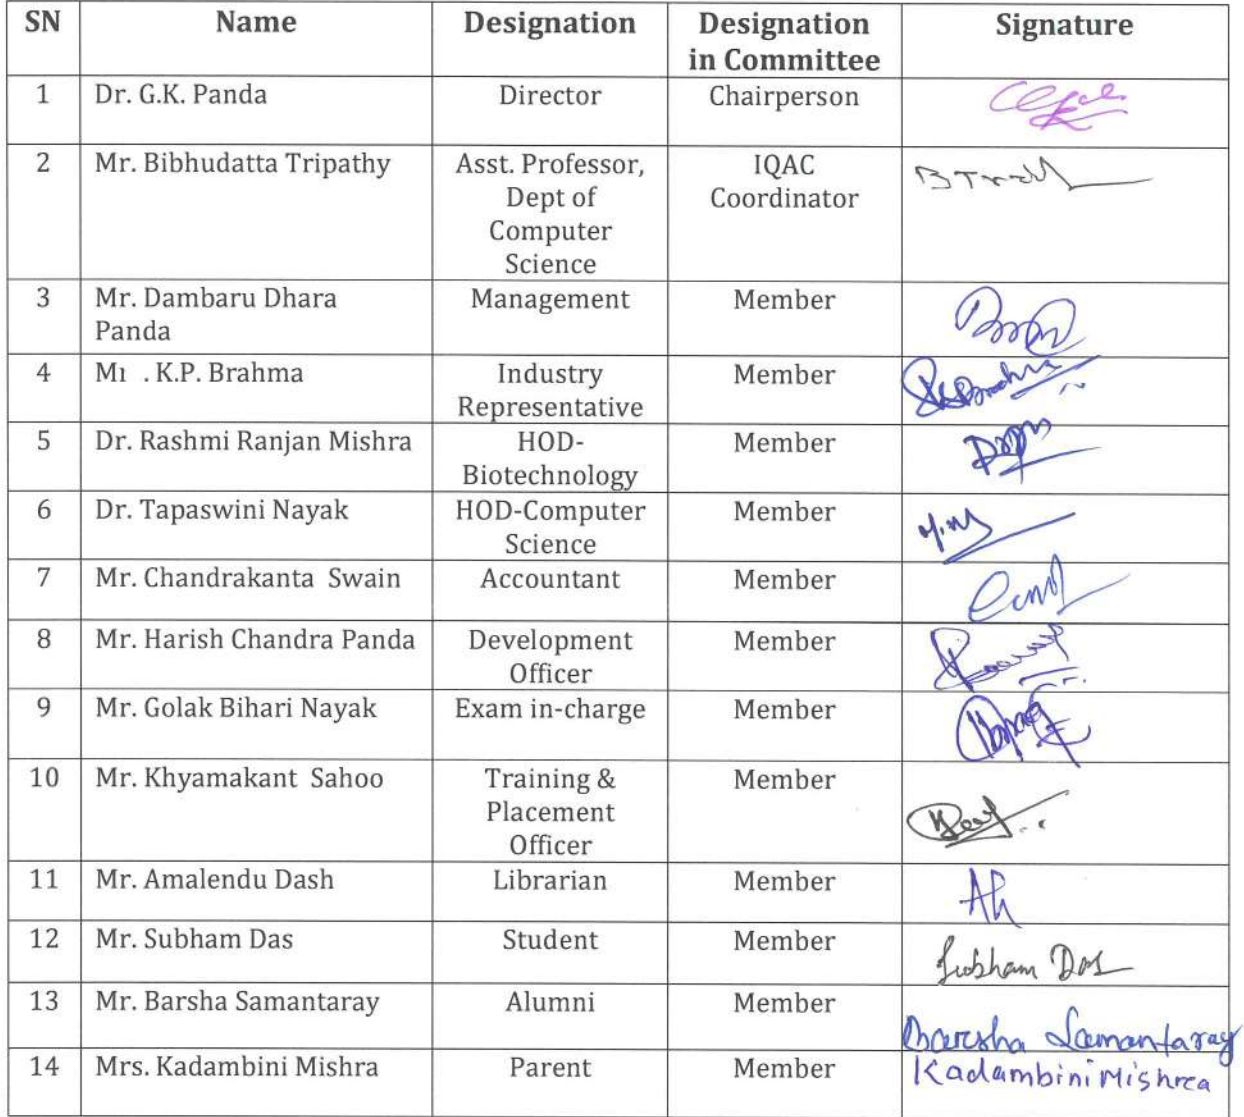 SN Name Designation Designation in Committee Signature
1 Dr. G.K. Panda Director Chairperson
2 Mr. Bibhudatta Tripathy Asst. Professor, Dept of Computer Science IQAC Coordinator
3 Mr. Dambaru Dhara Panda Management Member
4 K.P. Brahma Industry Representative Member
5 Dr. Rashmi Ranjan Mishra HOD-Biotechnology Member
6 Dr. Tapaswini Nayak HOD-Computer Science Member
7 Mr. Chandrakanta Swain Accountant Member
8 Mr. Harish Chandra Panda Development Officer Member
9 Mr. Golak Bihari Nayak Exam in-charge Member
10 Mr. Khyamakant Sahoo Training & Placement Officer Member
11 Mr. Amalendu Dash Librarian Member
12 Mr. Subham Das Student Member Subham Das
13 Mr. Barsha Samantaray Alumni Member Barsha Samantaray
14 Mrs. Kadambini Mishra Parent Member Kadambini Mishra